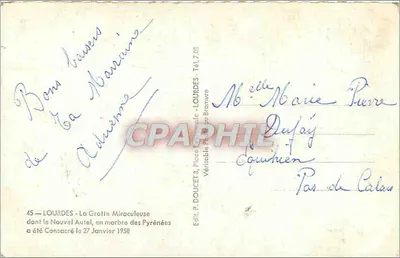 Bons baisers
de Ta Marraine
Adrienne
45 — LOURDES - La Grotte Miraculeuse
dont le Nouvel Autel, en marbre des Pyrénées
a été Consacré le 27 Janvier 1958
Edit. P. DOUCET, 8, Place LOURDES - Tél. 7.88
Véritable au Bromure
CPAPHIL
Melle Marie Pierre
Dufay
Equihen
Pas de Calais